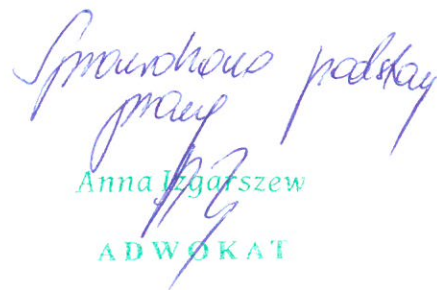 Sprawdzono podstawy
prawne
Anna Izgarszew
ADWOKAT